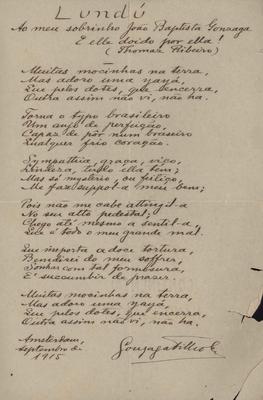 Lundú
Ao meu sobrinho João Baptista Gonzaga
E elle doido por ella!
(Thomaz Ribeiro)
Muitas mocinhas na terra,
Mas adoro uma yayá,
Que pelos dotes, que encerra,
Outra assim não vi, não ha.
Torna o typo brasileiro
Um anjo de perfeição,
Capaz de pôr num braseiro
Qualquer frio coração.
Sympathia, graça, viço,
Lindeza, tudo ella tem;
Mas só mysterio, ou feitiço,
Me faz suppol-a meu bem;
Pois não me cabe attingil-a
No seu alto pedestal;
Chego até mesmo a sentil-a
Que é todo o meu grande mal.
Que importa a doce tortura,
Bendirei do meu soffrer,
Sonhar com tal formosura,
É succumbir de prazer.
Muitas mocinhas na terra,
Mas adoro uma yayá,
Que pelos dotes, que encerra,
Outra assim não vi, não ha.
Amsterdam,
septembro de
1915
Gonzaga Filho